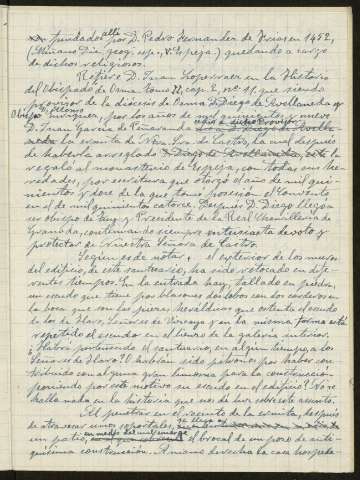 fundado allí por D. Pedro Fernandez de Frias en 1452,
(Miñano Dic. geog. esp., V. Espeja.) quedando a cargo
de dichos religiosos.
Refiere D. Juan Loperraez en la Historia
del Obispado de Osma tomo II, cap. 2, nº 11, que siendo
provisor de la diócesis de Osma D. Diego de Avellaneda y
Obispo Enriquez, por los años de mil quinientos y nueve
D. Juan Garcia de Peñaranda
la ermita de Ntra. Sra. de Castro, la cual después
de haberla arreglado D. Diego de Avellaneda, este la
regaló al monasterio de Espeja, con todas sus he-
redades, por escritura que otorgó el año de mil qui-
nientos y diez de la que tomó posesión el Convento
en el de mil quinientos catorce. Después D. Diego llegó a
ser obispo de Tuy y Presidente de la Real Chancilleria de
Granada, continuando siempre devoto y
protector de Nuestra Señora de Castro.
Según es de notar, el exterior de los muros
del edificio, de este santuario, ha sido retocado en dife-
rentes tiempos. En la entrada hay, tallado en piedra,
un escudo que tiene por blasones dos lobos con dos corderos en
la boca que son las piezas heraldicas que ostenta el escudo
de los de Haro, Señores de Vizcaya y en la misma forma está
repetido el escudo en el lienzo de la galería interior.
¿Habrá pertenecido el santuario, en algún tiempo a los
Señores de Haro? ¿O habrán sido patronos por haber con-
tribuido con alguna gran limosna para la construcción
poniendo por este motivo su escudo en el edificio? No se
halla nada en la historia que nos dé luz sobre este asunto.
Al penetrar en el recinto de la ermita, después
de atravesar unos soportales, se llega a
un patio, en medio del cual surge el brocal de un pozo de anti-
quísima construcción. A mano derecha la casa hospede-